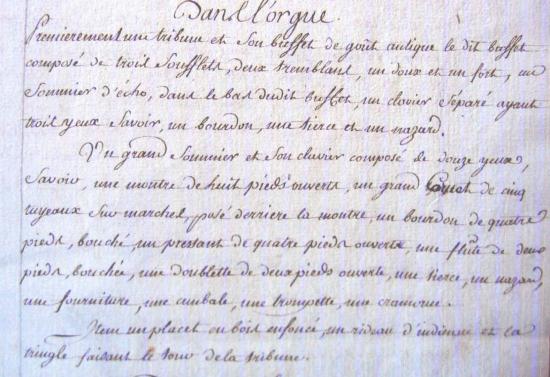 Dans l'orgue.
Premierement une tribune et son buffet de goût antique le dit buffet
composé de trois soufflets, deux tremblans, un doux et un fort, un
sommier d'écho, dans le bas dudit buffet, un clavier séparé ayant
trois yeux savoir, un bourdon, une tierce et un nazard.
Un grand sommier et son clavier composé de douze yeux,
savoir, une montre de huit pieds ouverts, un grand cornet de cinq
tuyeaux sur marches, posé derriere la montre, un bourdon de quatre
pieds, bouché, un prestant de quatre pieds ouverts, une flûte de deux
pieds, bouchée, une doublette de deux pieds ouverte, une tierce, un nazard,
une fourniture, une cimbale, une trompette, une cramone.
Item un placet en bois enfoncé, un rideau d'indienne et la
tringle faisant le tour de la tribune.